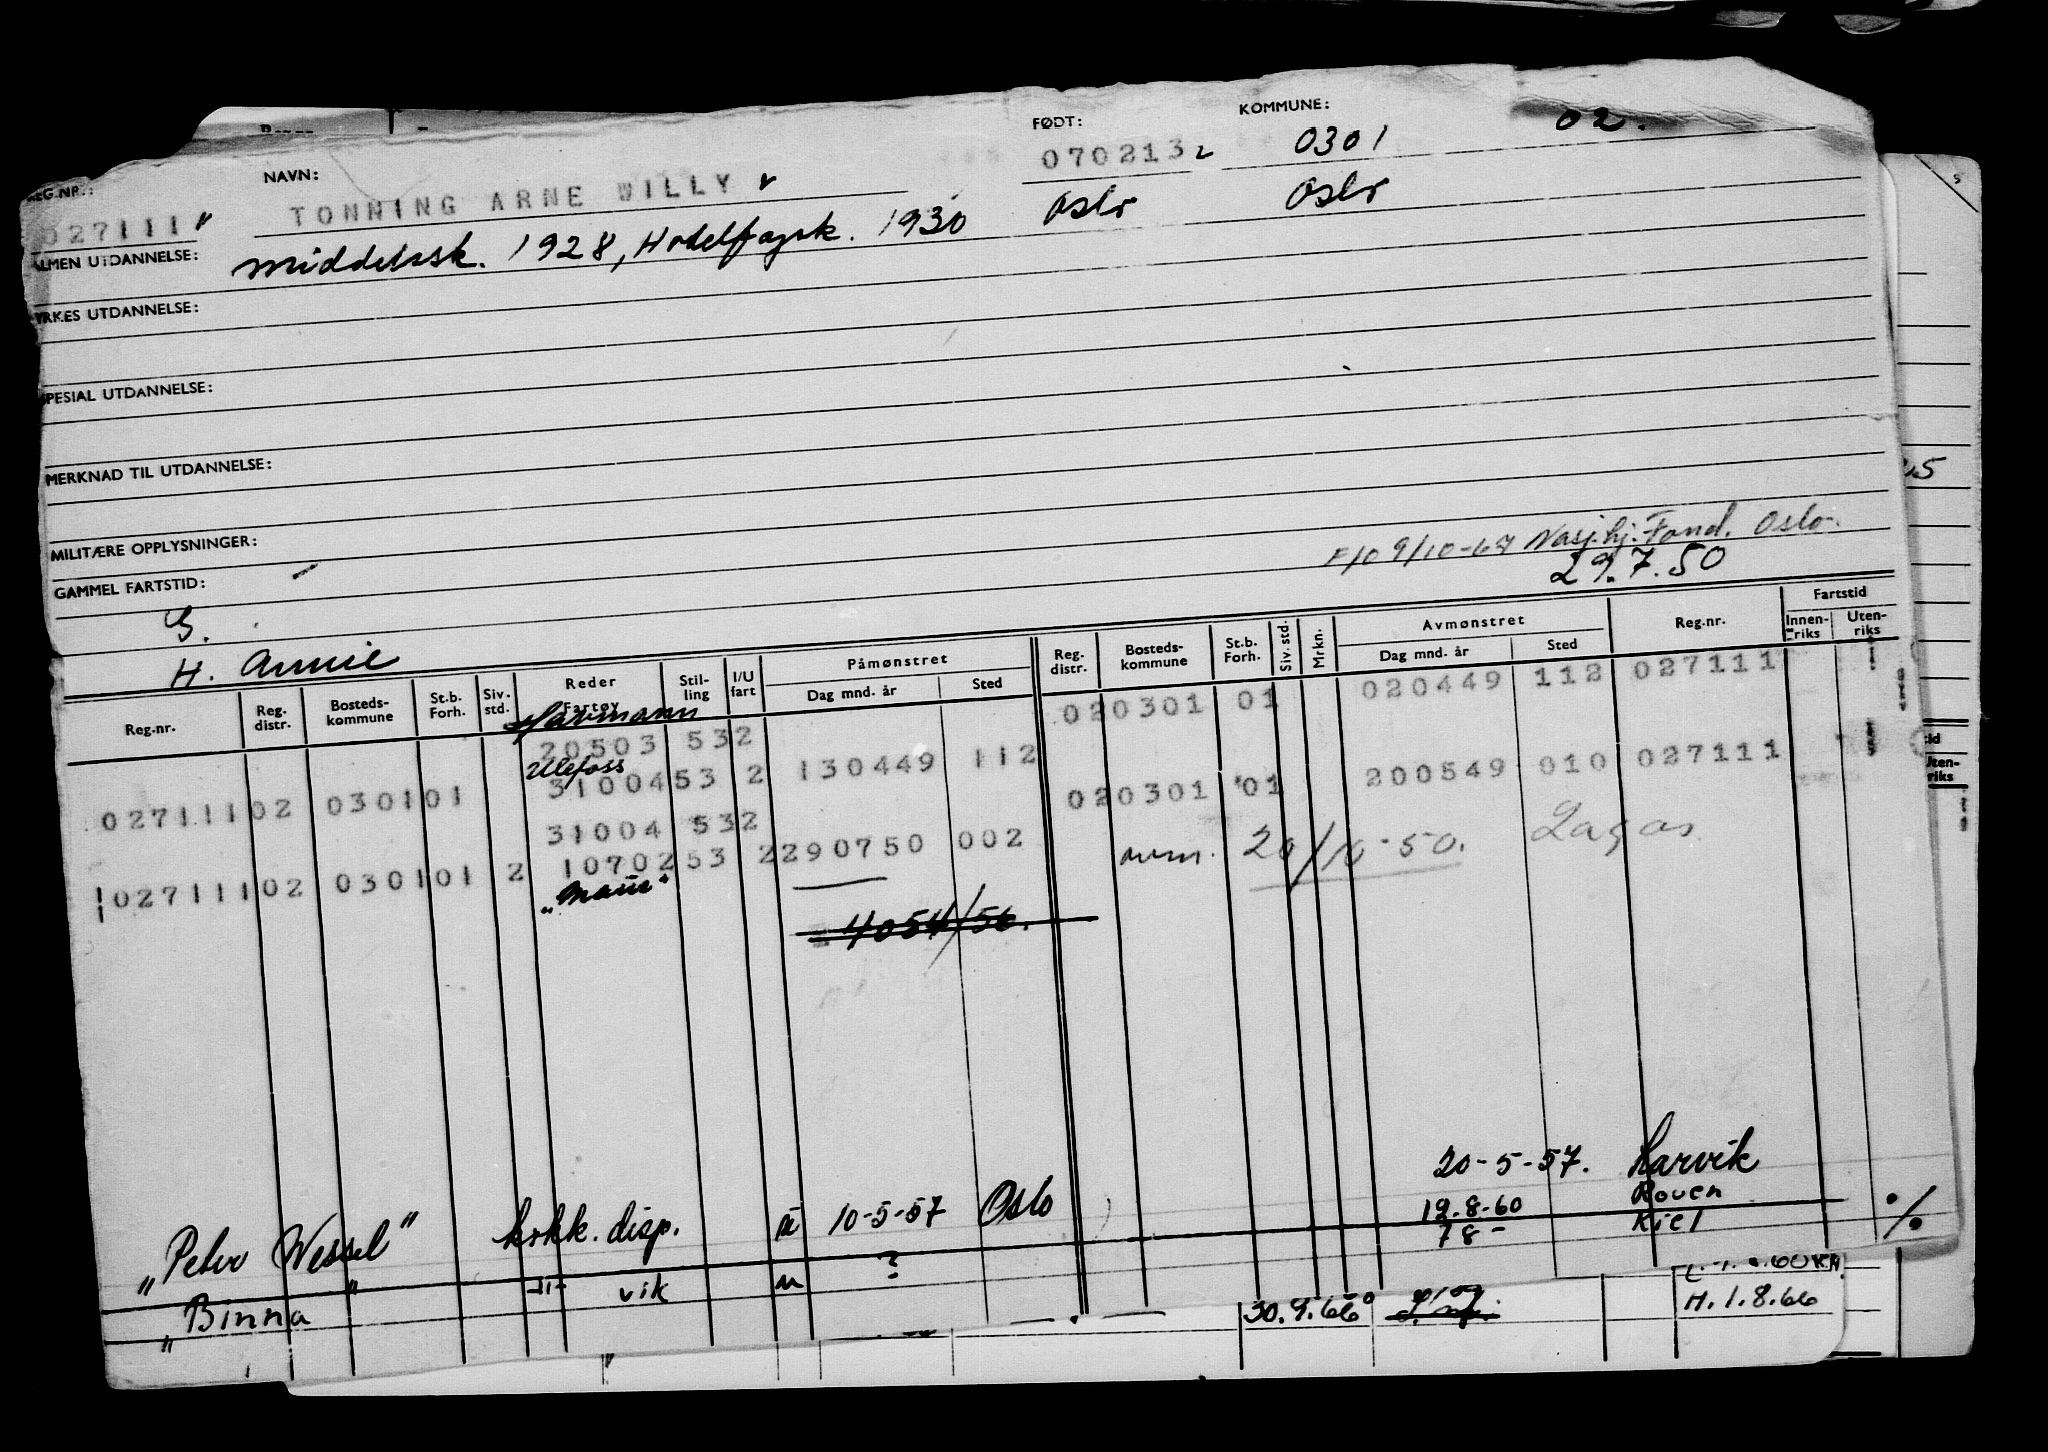 FØDT: KOMMUNE: 02.
REG.NR.: NAVN: 070213 2 0301
027111 TONNING ARNE WILLY Oslo Oslo
ALMEN UTDANNELSE: Middelssk. 1928, Hotelfagsk. 1930
YRKES UTDANNELSE:
SPESIAL UTDANNELSE:
MERKNAD TIL UTDANNELSE:
MILITÆRE OPPLYSNINGER: F/O 9/10-67 Nasj.hj.Fond. Oslo.
GAMMEL FARTSTID: 29.7.50
G.
H. Annie
Reg.nr. Reg. distr. Bosteds- kommune St.b. Forh. Siv. std. Reder Fartøy Stil- ling I/U fart Påmønstret Dag mnd. år Sted Reg. distr. Bosteds- kommune St.b. Forh. Siv. std. Mrkn. Avmønstret Dag mnd. år Sted Reg.nr. Fartstid Innen- riks Uten- riks
Havmann
20503 532 020301 01 020449 112 027111
Ulefoss
027111 02 0301 01 31004 53 2 130449 112 020301 01 200549 010 027111
31004 532
027111 02 0301 01 2 10702 53 2 290750 002 avm. 20/10-50. Lagos
4054/56.
20-5-57. Larvik
"Peter Wessel" kokk. disp. 10-5-57 Oslo
19.8.60 Rouen
78- Kiel
"Binna -"- vik ?
30.9.66
H.1.8.66